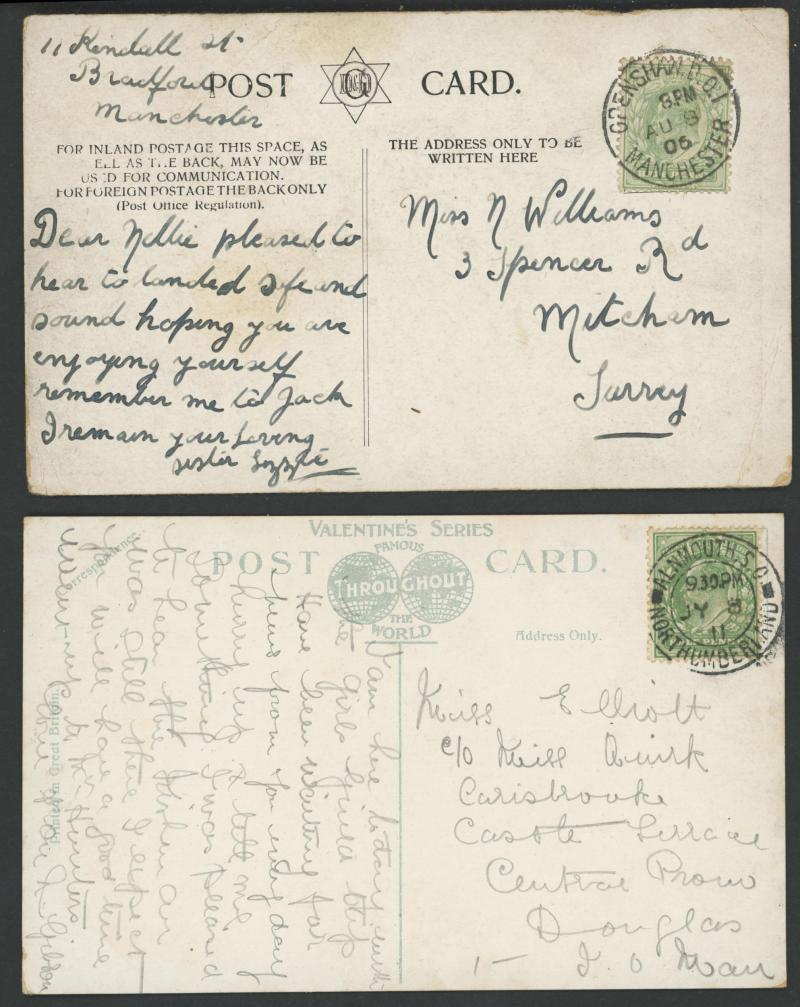 11 Kendall St
Bradford
Manchester
POST CARD.
D&G
FOR INLAND POSTAGE THIS SPACE, AS
ELL AS THE BACK, MAY NOW BE
USED FOR COMMUNICATION.
FOR FOREIGN POSTAGE THE BACK ONLY
(Post Office Regulation).
THE ADDRESS ONLY TO BE
WRITTEN HERE
8 PM
AU 8
06
MANCHESTER
Dear Nellie pleased to
hear to landed safe and
sound hoping you are
enjoying yourself
remember me to Jack
I remain your Loving
sister Lizzie
Miss N Williams
3 Spencer Rd
Mitcham
Surrey
VALENTINE'S SERIES
POST CARD.
FAMOUS
THROUGHOUT
THE
WORLD
Correspondence.
Address Only.
Printed in Great Britain.
ALNMOUTH S.O.
9.30 PM
JY 8
11
NORTHUMBERLAND
I am here today with
the girls Guild trip
Have been waiting for
news from you every day
Hurry up & tell me
something. I was pleased
to hear the
was still there I expect
you will have a good time
Hunters
Gibbon
Miss Elliott
c/o Miss Quirk
Carisbrooke
Castle Terrace
Central Prom
Douglas
I. O Man